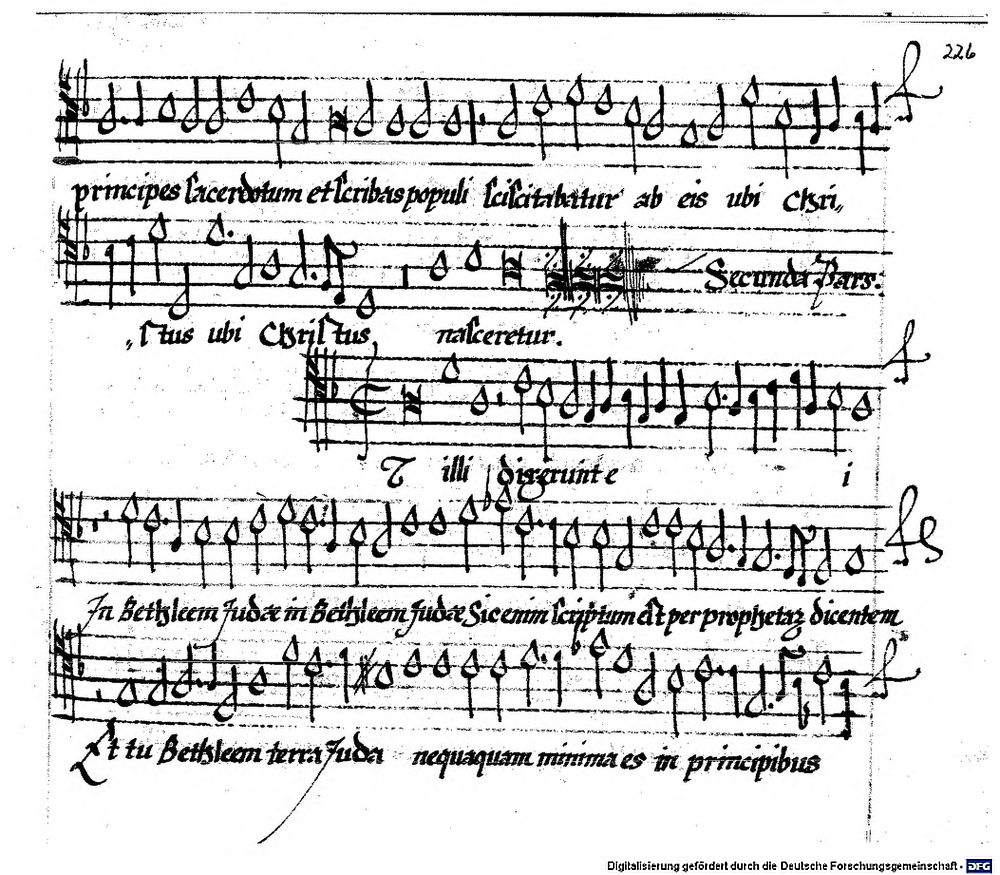 226
principes sacerdotum et scribas populi sciscitabatur ab eis ubi Chri„
Secunda Pars.
„stus ubi Christus, nasceretur.
T illi dixerunt e i
In Bethleem Judæ in Bethleem Judæ Sic enim scriptum est per prophetaz dicentem
Et tu Bethleem terra Juda nequaquam minima es in principibus
Digitalisierung gefördert durch die Deutsche Forschungsgemeinschaft - DFG